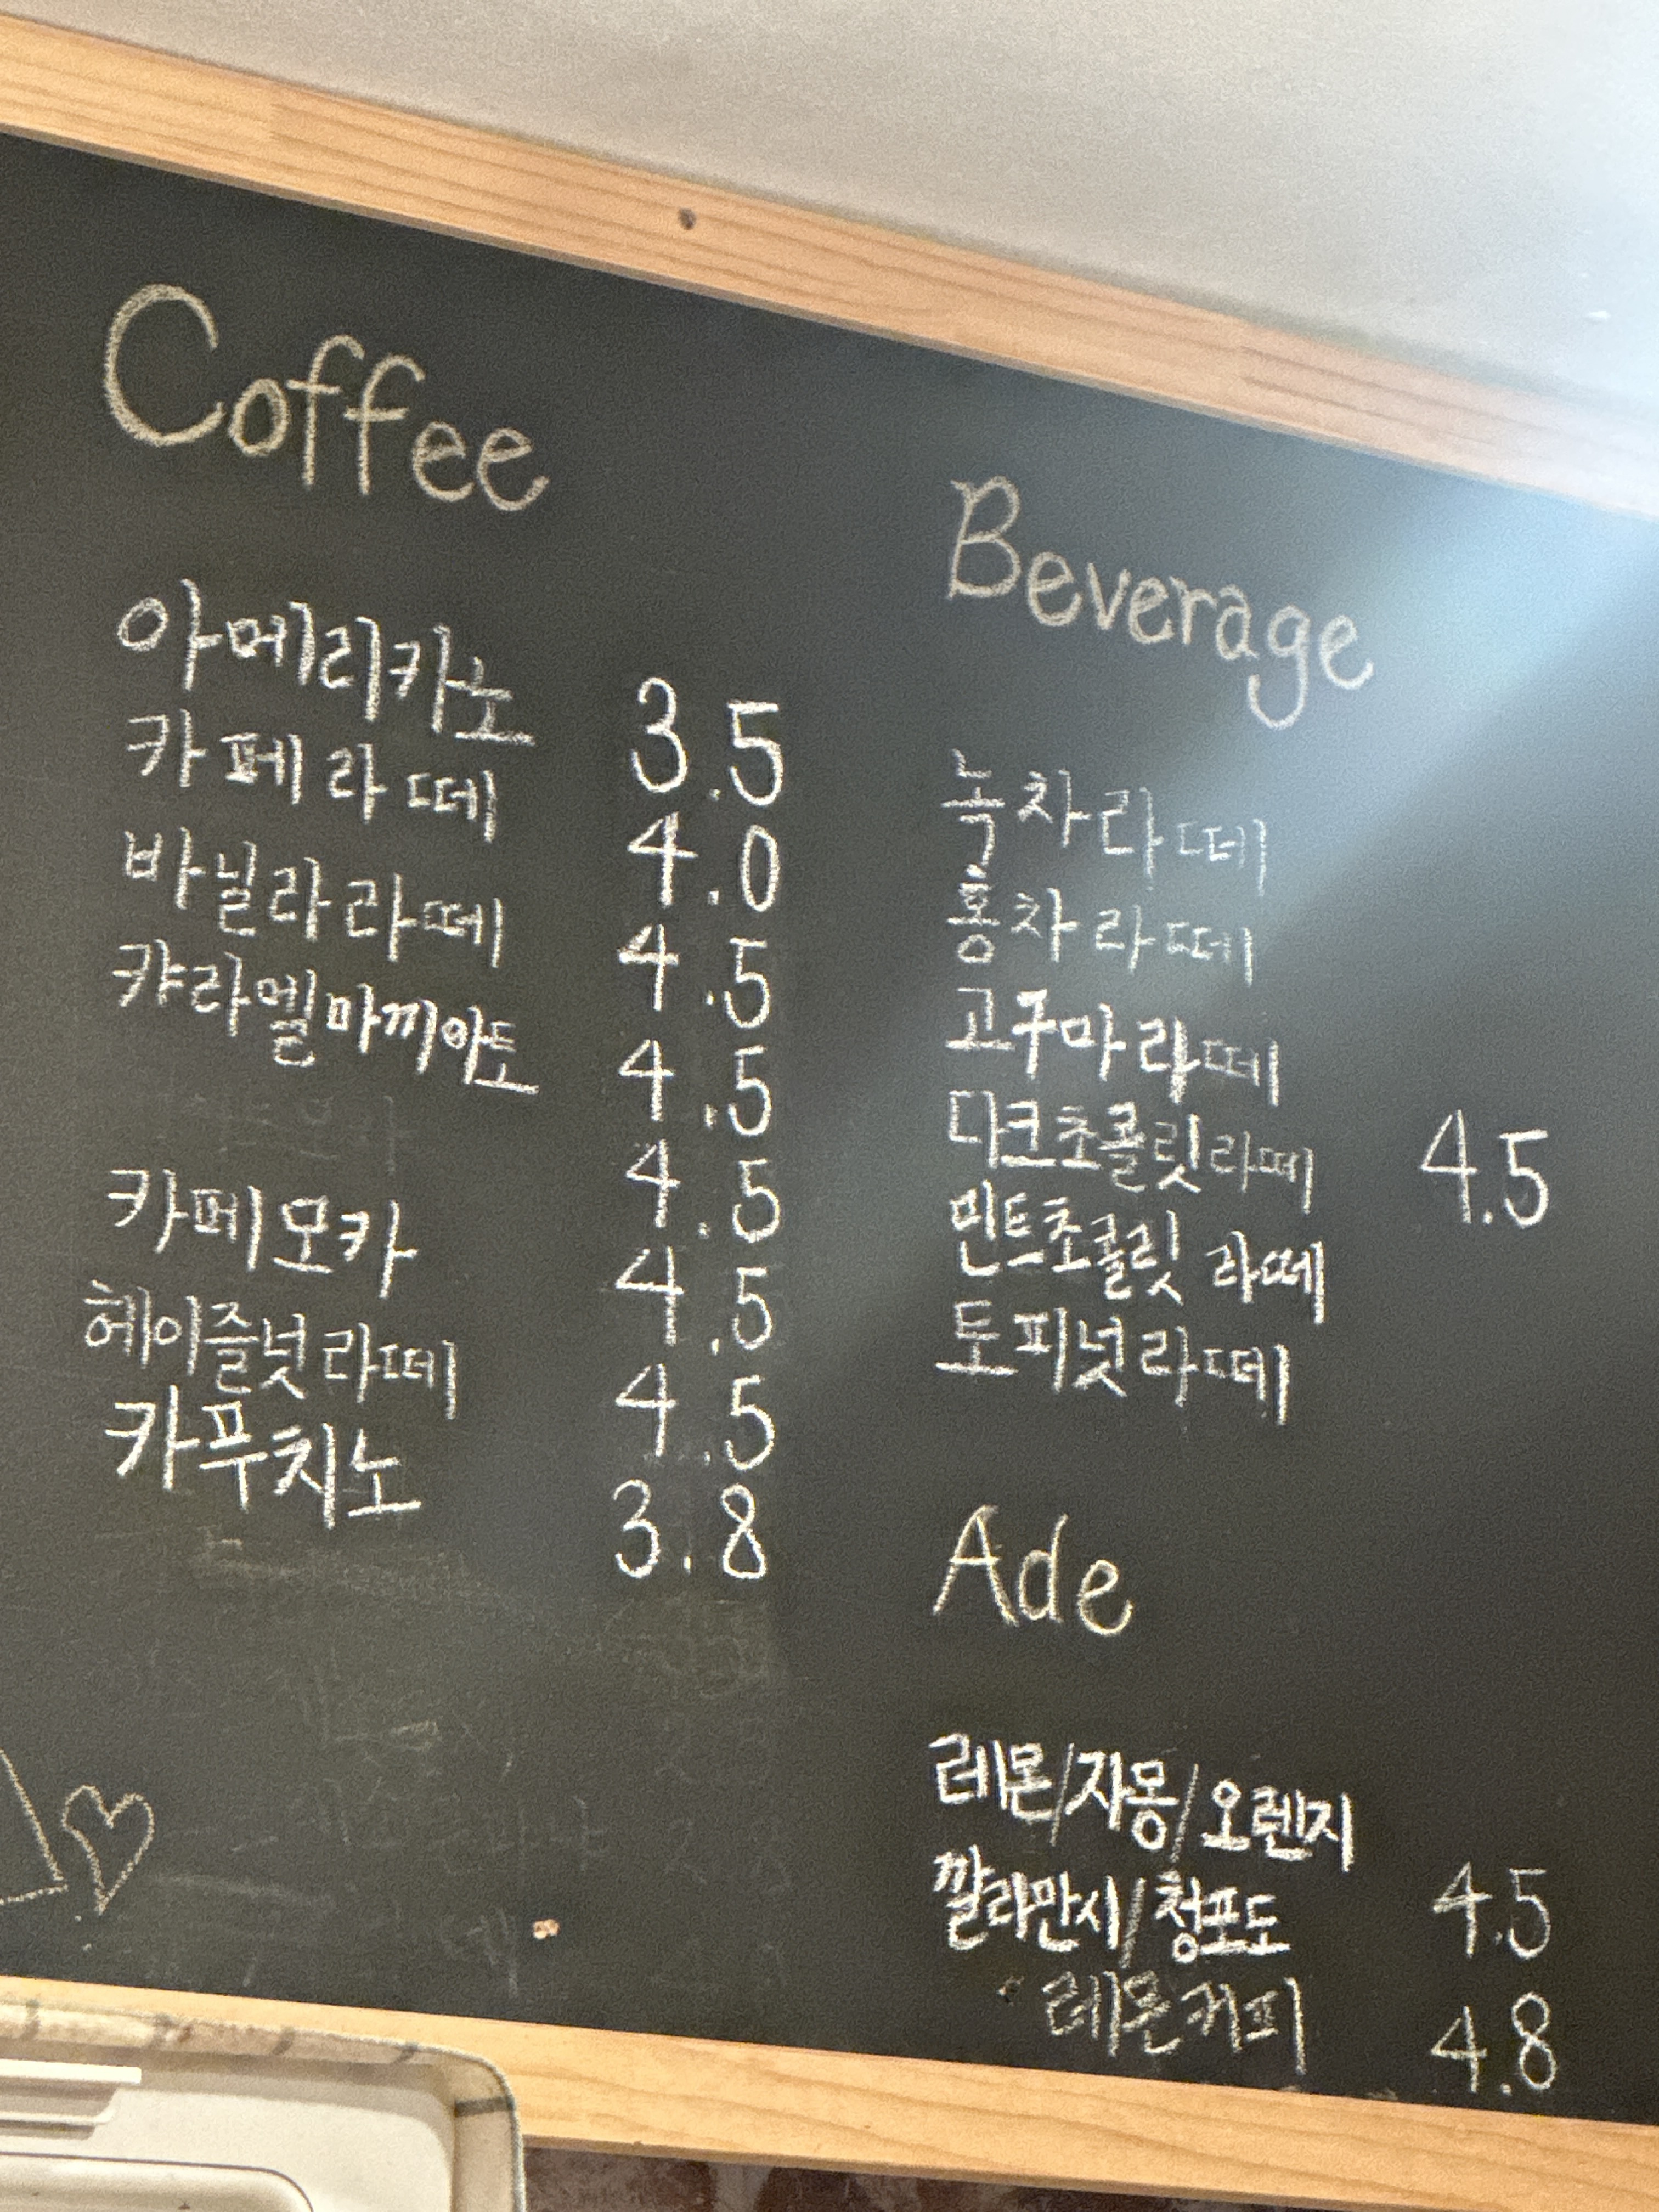 Coffee
아메리카노 3.5
카페라떼 4.0
바닐라라떼 4.5
캬라멜마끼아또 4.5
4.5
카페모카 4.5
헤이즐넛라떼 4.5
카푸치노 3.8
Beverage
녹차라떼
홍차라떼
고구마라떼
다크초콜릿라떼 4.5
민트초콜릿 라떼
토피넛라떼
Ade
레몬/자몽/오렌지
깔라만시/청포도 4.5
레몬커피 4.8